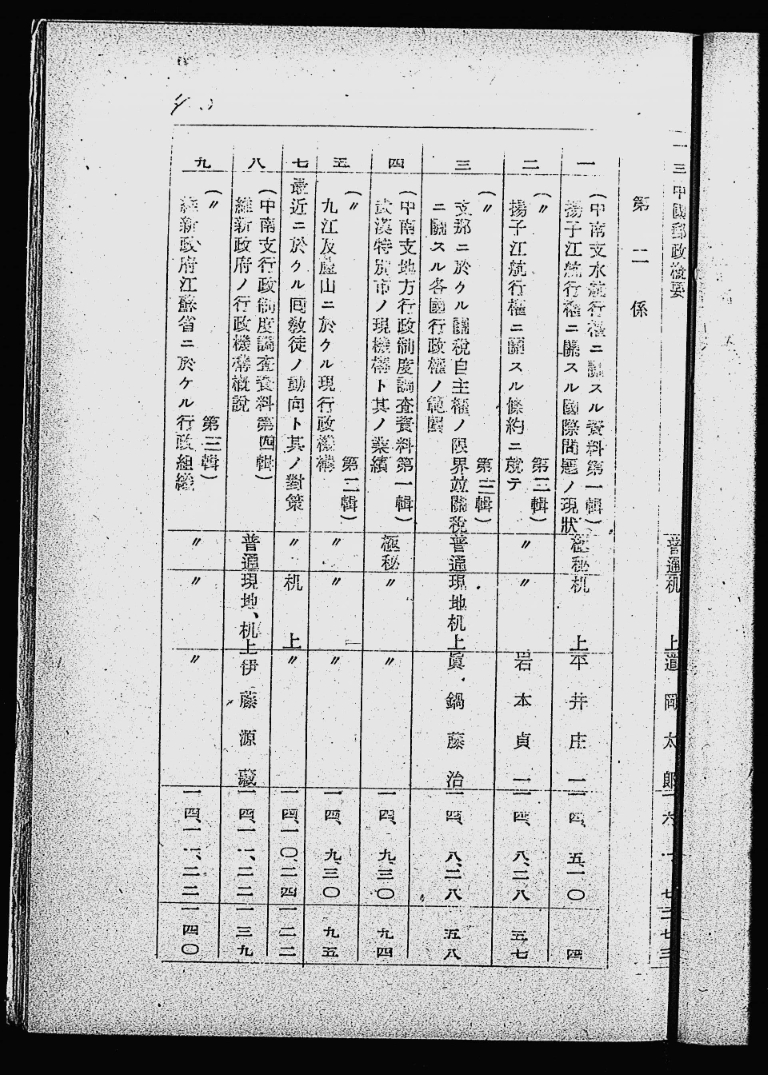 一三 中國郵政概要 普通 机上 太郎
第二係
一 (中南支水航行權ニ關スル資料第一輯)
揚子江航行權ニ關スル國際問題ノ現狀 極秘 机上 平井庄一 一四、五、一〇 四
二 (〃 第二輯)
揚子江航行權ニ關スル條約ニ就テ 〃 〃 岩本貞一 一四、八、二八 五七
三 (〃 第三輯)
支那ニ於クル關稅自主權ノ限界竝關稅
ニ關スル各國行政權ノ範圍 普通 現地机上 眞鍋藤治 一四、八、二八 五八
四 (中南支地方行政制度調査資料第一輯)
武漢特別市ノ現機構ト其ノ業績 極秘 〃 〃 一四、九、三〇 九四
五 (〃 第二輯)
九江及廬山ニ於クル現行政機構 〃 〃 〃 一四、九、三〇 九五
七 最近ニ於クル囘敎徒ノ動向ト其ノ對策 〃 机上 〃 一四、一〇、二四 一二二
八 (中南支行政制度調査資料第四輯)
維新政府ノ行政機構槪說 普通 現地、机上 伊藤源藏 一四、一一、二二 一三九
九 (〃 第三輯)
維新政府江蘇省ニ於ケル行政組織 〃 〃 〃 一四、一一、二二 一四〇